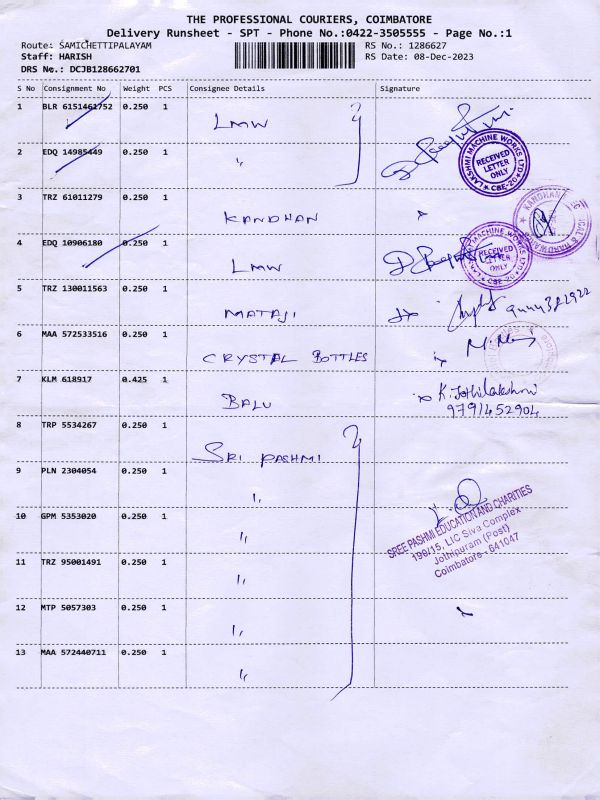 THE PROFESSIONAL COURIERS, COIMBATORE
Delivery Runsheet - SPT - Phone No.:0422-3505555 - Page No.:1
Route: SAMICHETTIPALAYAM RS No.: 1286627
Staff: HARISH RS Date: 08-Dec-2023
DRS No.: DCJB128662701
S No Consignment No Weight PCS Consignee Details Signature
1 BLR 6151461752 0.250 1 LMW
2 EDQ 14985449 0.250 1 "
LAKSHMI MACHINE WORKS LTD
RECEIVED
LETTER
ONLY
CBE-20
3 TRZ 61011279 0.250 1 KANDHAN
KANDHAN
4 EDQ 10906180 0.250 1 LMW
MACHINE WORKS LTD
RECEIVED
LETTER
ONLY
CBE-20
5 TRZ 130011563 0.250 1 MATAJI
6 MAA 572533516 0.250 1 CRYSTAL BOTTLES
7 KLM 618917 0.425 1 BALU K. Jothilakshmi
9791452904
8 TRP 5534267 0.250 1 SRI PASHMI
9 PLN 2304054 0.250 1 "
10 GPM 5353020 0.250 1 "
SREE PASHMI EDUCATION AND CHARITIES
199/15, LIC Siva Complex
Jothipuram (Post)
Coimbatore - 641047
11 TRZ 95001491 0.250 1 "
12 MTP 5057303 0.250 1 "
13 MAA 572440711 0.250 1 "